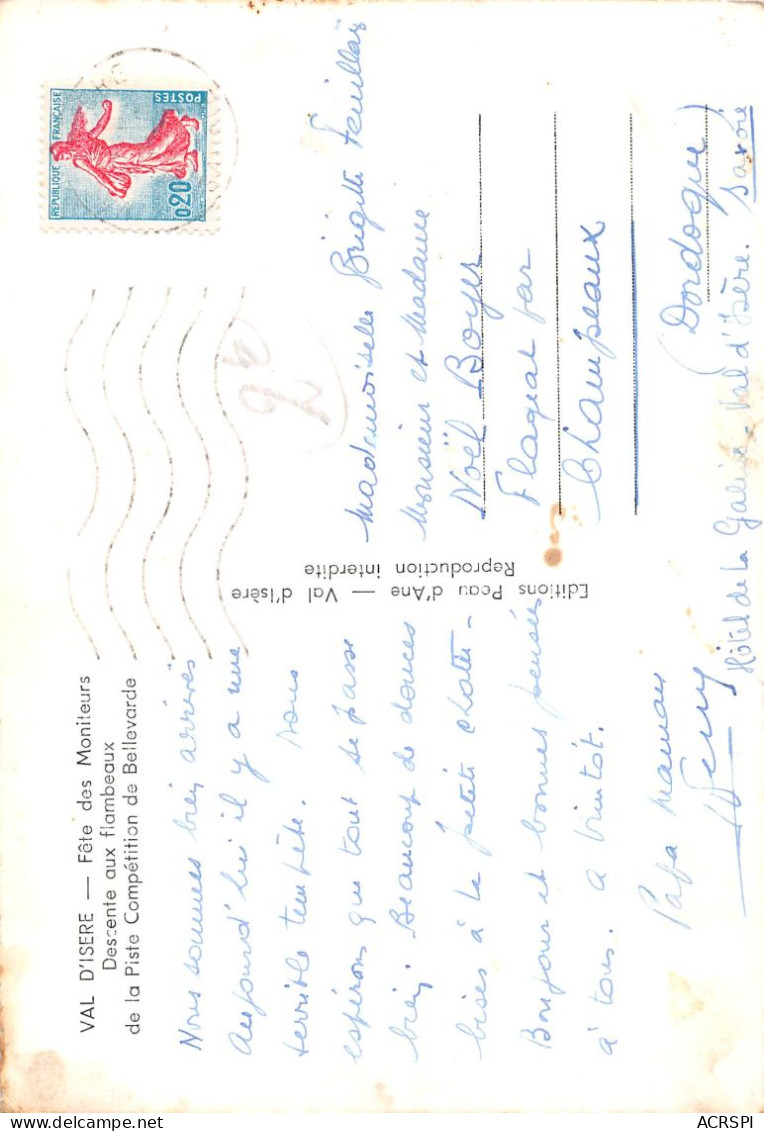 VAL D'ISERE — Fête des Moniteurs
Descente aux flambeaux
de la Piste Compétition de Bellevarde
Nous sommes bien arrivés
Aujourd'hui il y a une
terrible tempête. Nous
espérons que tout se passe
bien. Beaucoup de douces
bises à la petite chatte-
Bonjour et bonnes pensées
à tous. A bientôt.
Papa Maman
Editions Peau d'Ane — Val d'Isère
Reproduction interdite
REPUBLIQUE FRANÇAISE
POSTES
0,20
Mademoiselle Brigitte Feuillay
Monsieur et Madame
Noël Boyer
Flageat par
Champeaux
(Dordogne)
Hôtel de la Galise - Val d'Isère. Savoie
ACRSPI